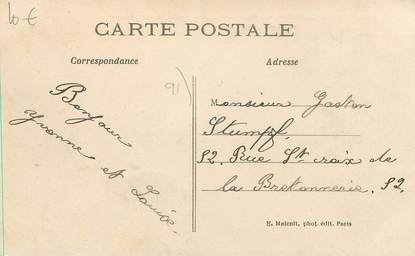 10 €
CARTE POSTALE
Correspondance
Adresse
91)
Bonjour
Yvonne et Louise.
Monsieur Gaston
Stumpf.
52. Rue St croix de
la Bretonnerie. 52.
E. Malcuit, phot. édit. Paris